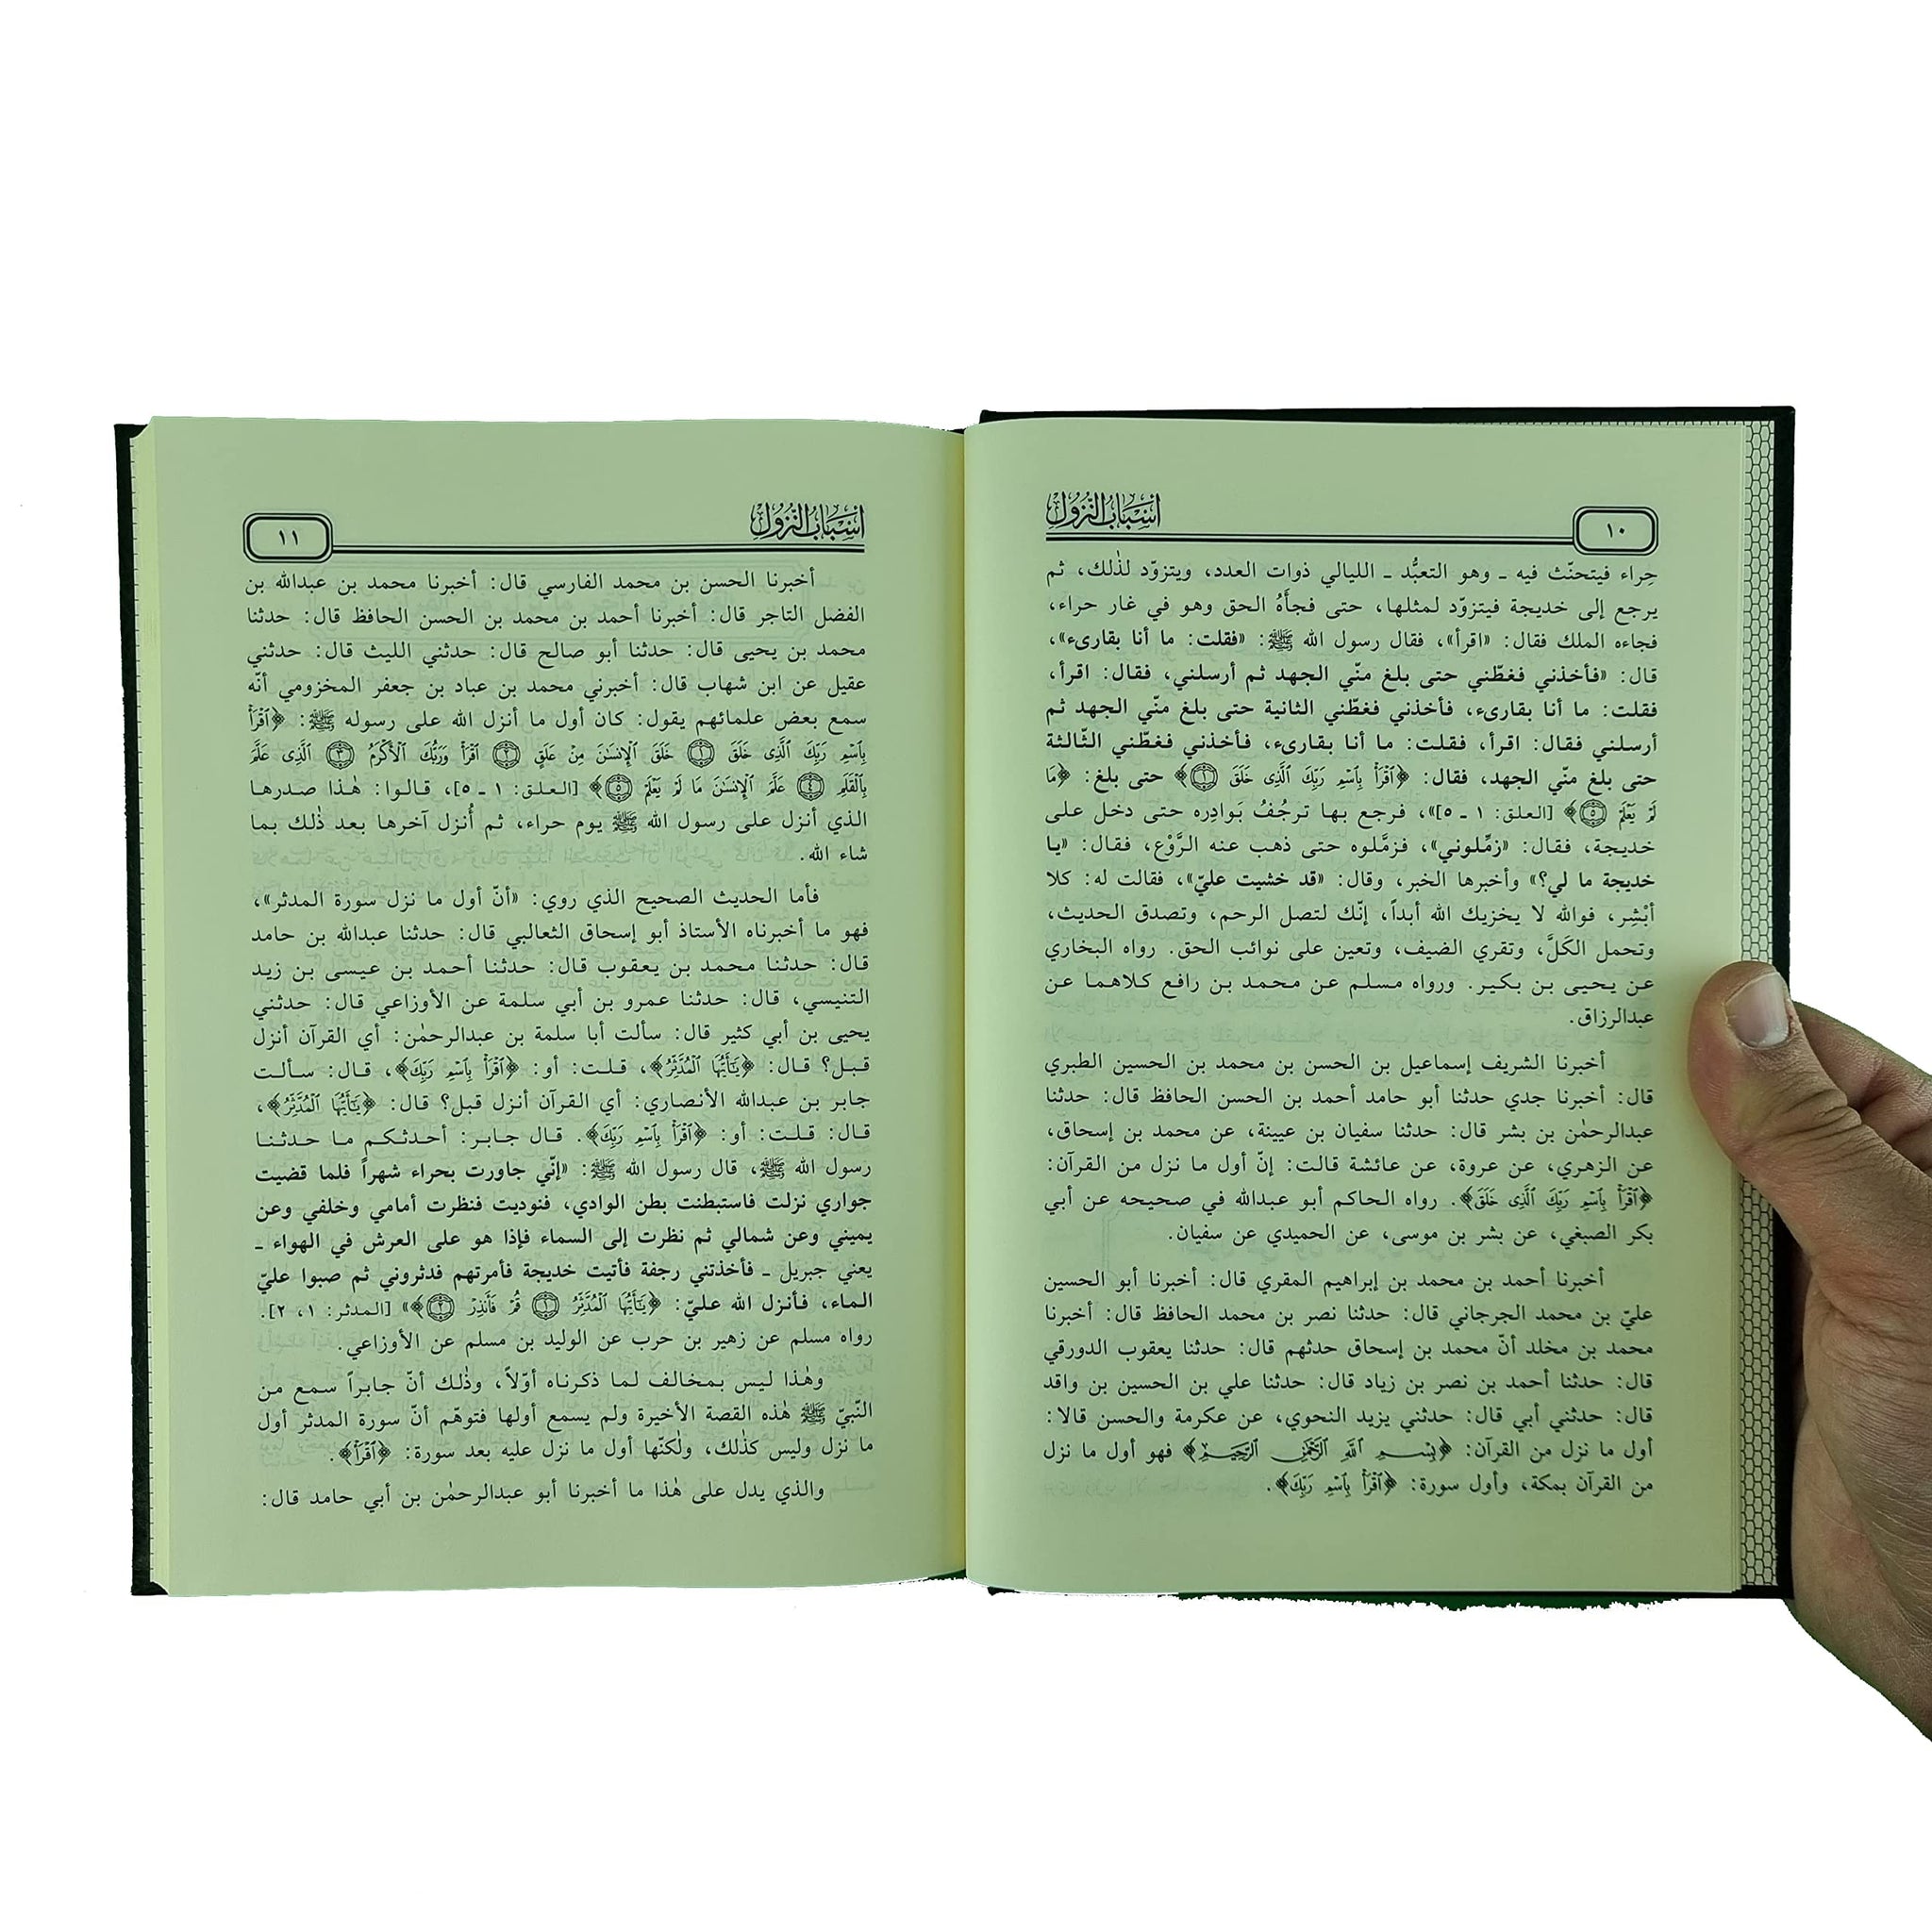 ١٠
أسباب النزول
حِراء فيتحنّث فيه ـ وهو التعبُّد ـ الليالي ذوات العدد، ويتزوّد لذٰلك، ثم
يرجع إلى خديجة فيتزوّد لمثلها، حتى فجأَهُ الحق وهو في غار حراء،
فجاءه الملك فقال: «اقرأ»، فقال رسول الله ﷺ: «فقلت: ما أنا بقارىء»،
قال: «فأخذني فغطّني حتى بلغ منّي الجهد ثم أرسلني، فقال: اقرأ،
فقلت: ما أنا بقارىء، فأخذني فغطّني الثانية حتى بلغ منّي الجهد ثم
أرسلني فقال: اقرأ، فقلت: ما أنا بقارىء، فأخذني فغطّني الثّالثة
حتى بلغ منّي الجهد، فقال: ﴿ٱقْرَأْ بِٱسْمِ رَبِّكَ ٱلَّذِى خَلَقَ ١﴾ حتى بلغ: ﴿مَا
لَمْ يَعْلَمْ ٥﴾ [العلق: ١ ـ ٥]»، فرجع بها ترجُفُ بَوادِره حتى دخل على
خديجة، فقال: «زمِّلوني»، فزمَّلوه حتى ذهب عنه الرَّوْع، فقال: «يا
خديجة ما لي؟» وأخبرها الخبر، وقال: «قد خشيت عليّ»، فقالت له: كلا
أبْشِر، فوالله لا يخزيك الله أبداً، إنّك لتصل الرحم، وتصدق الحديث،
وتحمل الكَلَّ، وتقري الضيف، وتعين على نوائب الحق. رواه البخاري
عن يحيى بن بكير. ورواه مسلم عن محمد بن رافع كلاهما عن
عبدالرزاق.
أخبرنا الشريف إسماعيل بن الحسن بن محمد بن الحسين الطبري
قال: أخبرنا جدي حدثنا أبو حامد أحمد بن الحسن الحافظ قال: حدثنا
عبدالرحمٰن بن بشر قال: حدثنا سفيان بن عيينة، عن محمد بن إسحاق،
عن الزهري، عن عروة، عن عائشة قالت: إنّ أول ما نزل من القرآن:
﴿ٱقْرَأْ بِٱسْمِ رَبِّكَ ٱلَّذِى خَلَقَ﴾. رواه الحاكم أبو عبدالله في صحيحه عن أبي
بكر الصبغي، عن بشر بن موسى، عن الحميدي عن سفيان.
أخبرنا أحمد بن محمد بن إبراهيم المقري قال: أخبرنا أبو الحسين
عليّ بن محمد الجرجاني قال: حدثنا نصر بن محمد الحافظ قال: أخبرنا
محمد بن مخلد أنّ محمد بن إسحاق حدثهم قال: حدثنا يعقوب الدورقي
قال: حدثنا أحمد بن نصر بن زياد قال: حدثنا علي بن الحسين بن واقد
قال: حدثني أبي قال: حدثني يزيد النحوي، عن عكرمة والحسن قالا:
أول ما نزل من القرآن: ﴿بِسْمِ ٱللَّهِ ٱلرَّحْمَٰنِ ٱلرَّحِيمِ﴾ فهو أول ما نزل
من القرآن بمكة، وأول سورة: ﴿ٱقْرَأْ بِٱسْمِ رَبِّكَ﴾.
أسباب النزول
١١
أخبرنا الحسن بن محمد الفارسي قال: أخبرنا محمد بن عبدالله بن
الفضل التاجر قال: أخبرنا أحمد بن محمد بن الحسن الحافظ قال: حدثنا
محمد بن يحيى قال: حدثنا أبو صالح قال: حدثني الليث قال: حدثني
عقيل عن ابن شهاب قال: أخبرني محمد بن عباد بن جعفر المخزومي أنّه
سمع بعض علمائهم يقول: كان أول ما أنزل الله على رسوله ﷺ: ﴿ٱقْرَأْ
بِٱسْمِ رَبِّكَ ٱلَّذِى خَلَقَ ١ خَلَقَ ٱلْإِنسَٰنَ مِنْ عَلَقٍ ٢ ٱقْرَأْ وَرَبُّكَ ٱلْأَكْرَمُ ٣ ٱلَّذِى عَلَّمَ
بِٱلْقَلَمِ ٤ عَلَّمَ ٱلْإِنسَٰنَ مَا لَمْ يَعْلَمْ ٥﴾ [العلق: ١ ـ ٥]، قالوا: هٰذا صدرها
الذي أنزل على رسول الله ﷺ يوم حراء، ثم أُنزل آخرها بعد ذٰلك بما
شاء الله.
فأما الحديث الصحيح الذي روي: «أنّ أول ما نزل سورة المدثر»،
فهو ما أخبرناه الأستاذ أبو إسحاق الثعالبي قال: حدثنا عبدالله بن حامد
قال: حدثنا محمد بن يعقوب قال: حدثنا أحمد بن عيسى بن زيد
التنيسي، قال: حدثنا عمرو بن أبي سلمة عن الأوزاعي قال: حدثني
يحيى بن أبي كثير قال: سألت أبا سلمة بن عبدالرحمٰن: أي القرآن أنزل
قبل؟ قال: ﴿يَٰٓأَيُّهَا ٱلْمُدَّثِّرُ﴾، قلت: أو: ﴿ٱقْرَأْ بِٱسْمِ رَبِّكَ﴾، قال: سألت
جابر بن عبدالله الأنصاري: أي القرآن أنزل قبل؟ قال: ﴿يَٰٓأَيُّهَا ٱلْمُدَّثِّرُ﴾،
قال: قلت: أو: ﴿ٱقْرَأْ بِٱسْمِ رَبِّكَ﴾. قال جابر: أحدثكم ما حدثنا
رسول الله ﷺ، قال رسول الله ﷺ: «إنّي جاورت بحراء شهراً فلما قضيت
جواري نزلت فاستبطنت بطن الوادي، فنوديت فنظرت أمامي وخلفي وعن
يميني وعن شمالي ثم نظرت إلى السماء فإذا هو على العرش في الهواء ـ
يعني جبريل ـ فأخذتني رجفة فأتيت خديجة فأمرتهم فدثروني ثم صبوا عليّ
الماء، فأنزل الله عليّ: ﴿يَٰٓأَيُّهَا ٱلْمُدَّثِّرُ ١ قُمْ فَأَنذِرْ ٢﴾» [المدثر: ١، ٢].
رواه مسلم عن زهير بن حرب عن الوليد بن مسلم عن الأوزاعي.
وهٰذا ليس بمخالف لما ذكرناه أوّلاً، وذٰلك أنّ جابراً سمع من
النّبيّ ﷺ هٰذه القصة الأخيرة ولم يسمع أولها فتوهّم أنّ سورة المدثر أول
ما نزل وليس كذٰلك، ولٰكنّها أول ما نزل عليه بعد سورة: ﴿ٱقْرَأْ﴾.
والذي يدل على هٰذا ما أخبرنا أبو عبدالرحمٰن بن أبي حامد قال: